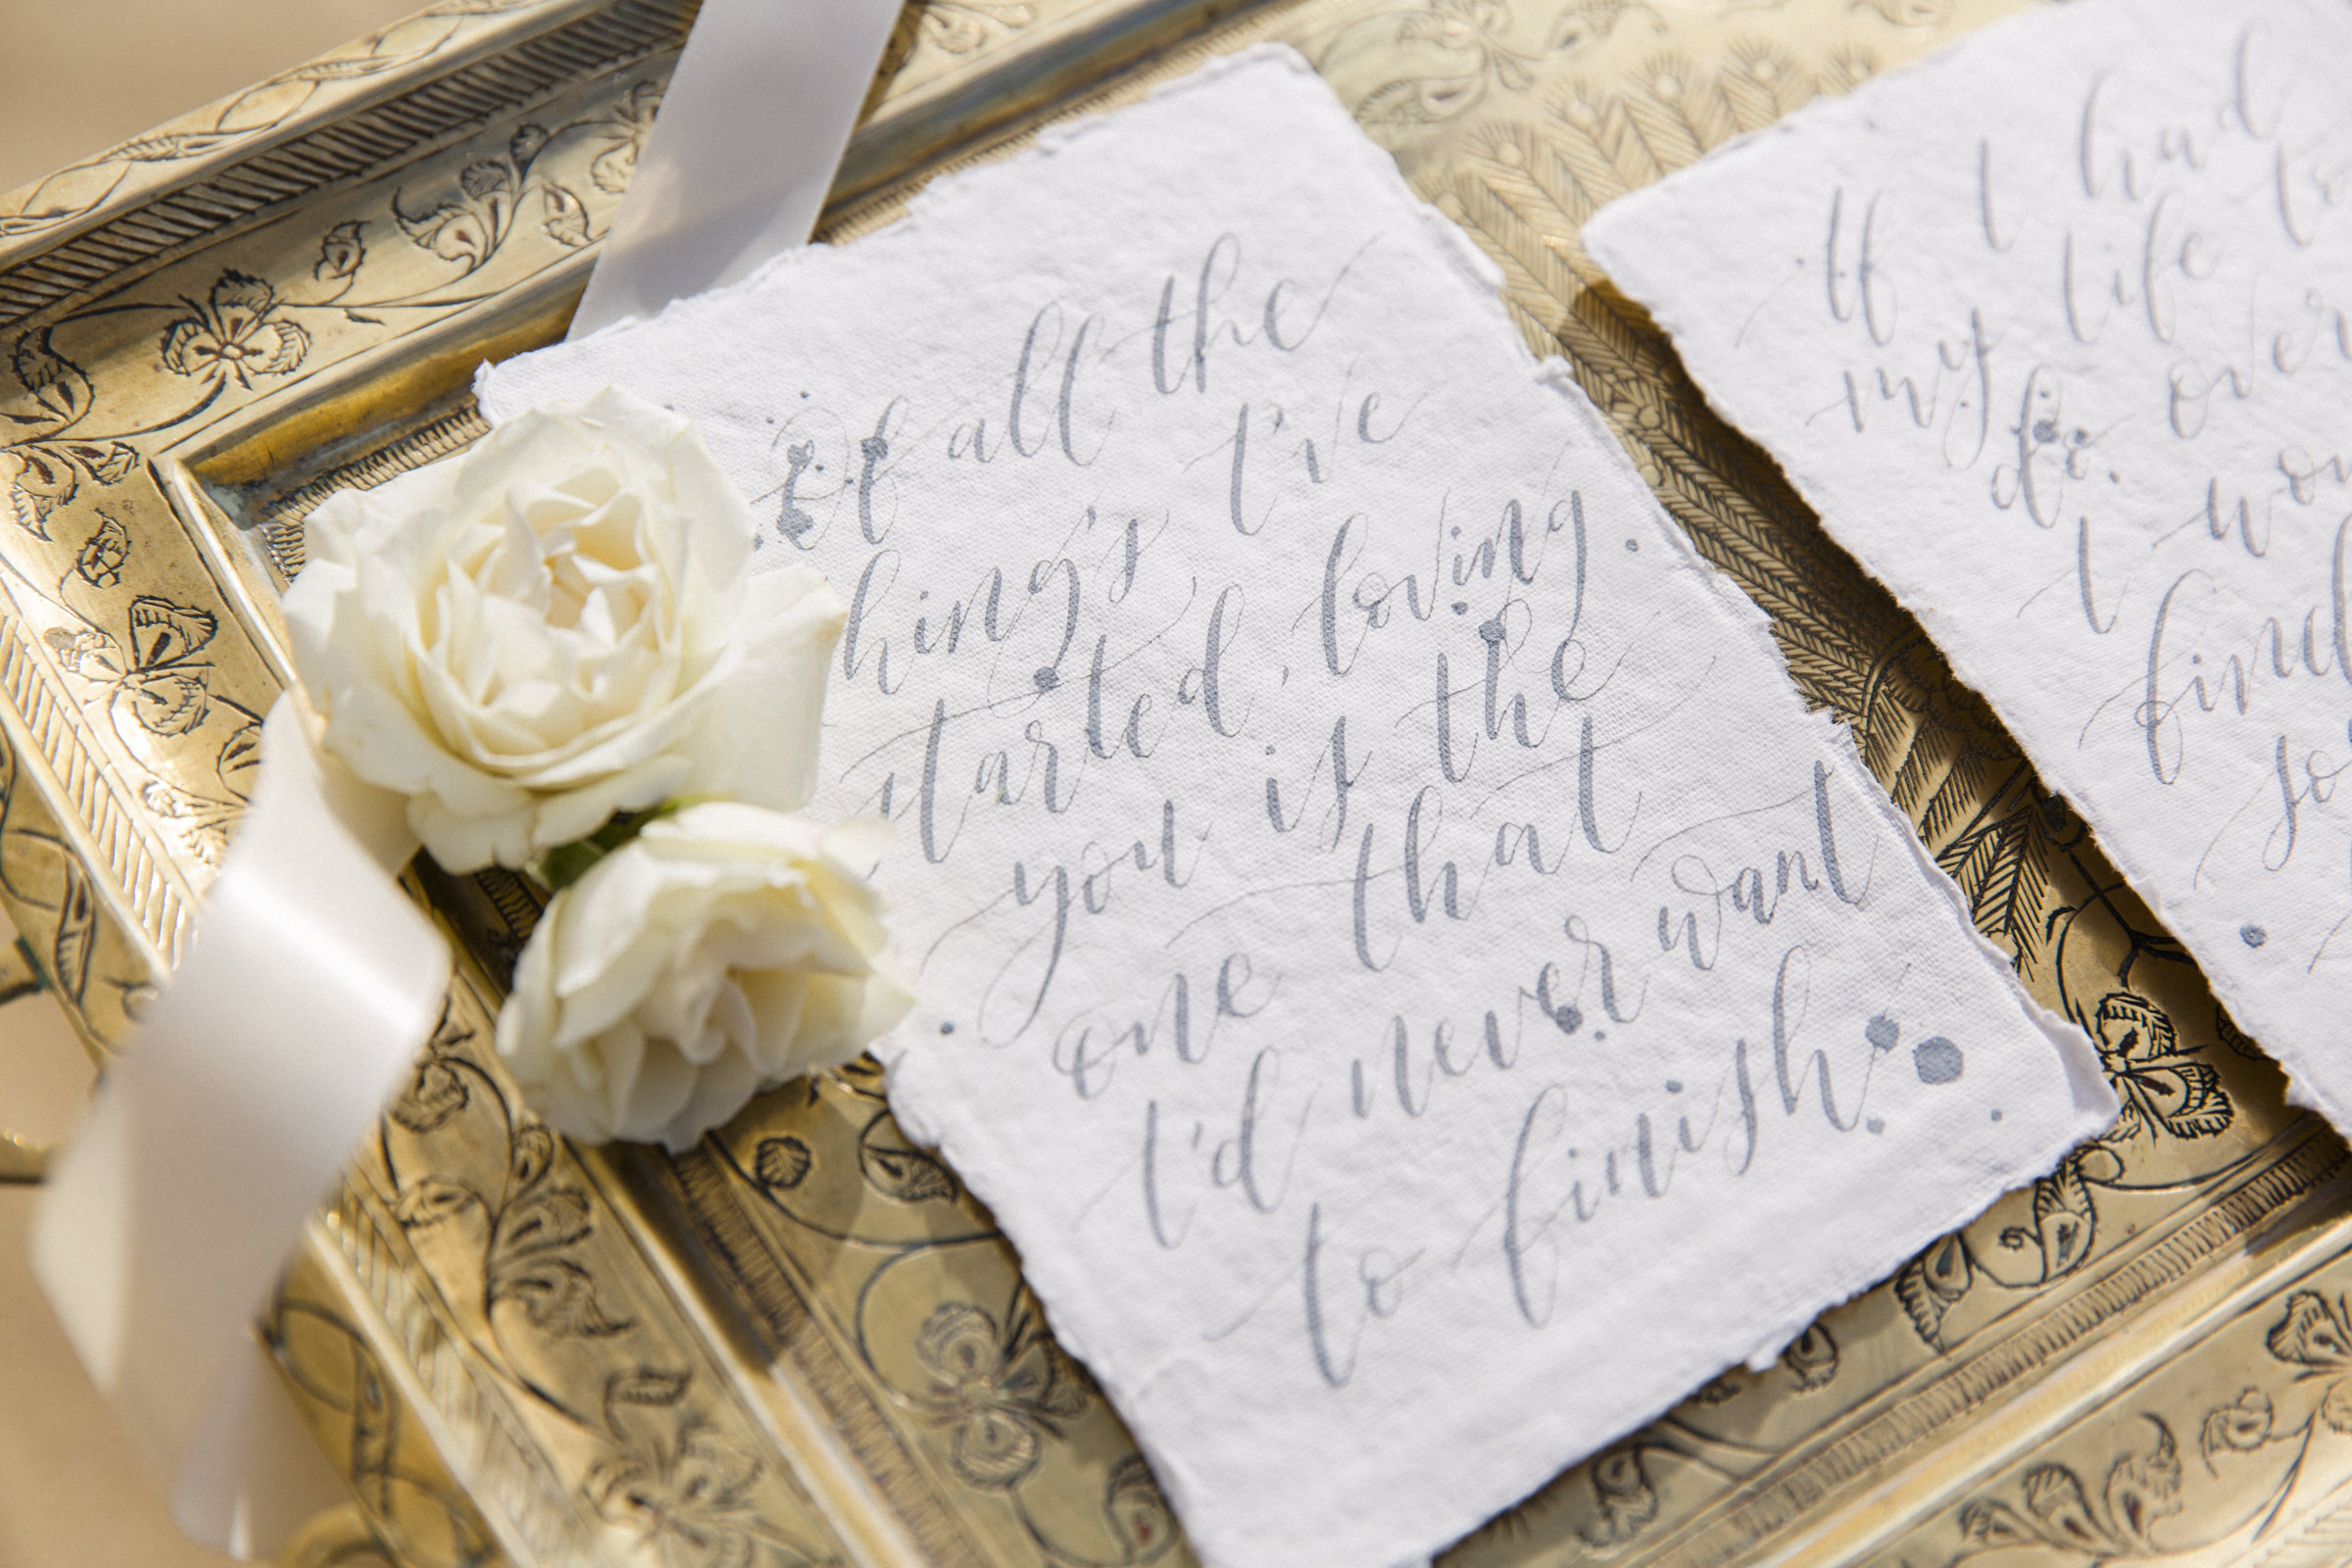 Of all the
hings I've
started, loving
you is the
one that
I'd never want
to finish.
If I had
my life
do. over
I
find
so